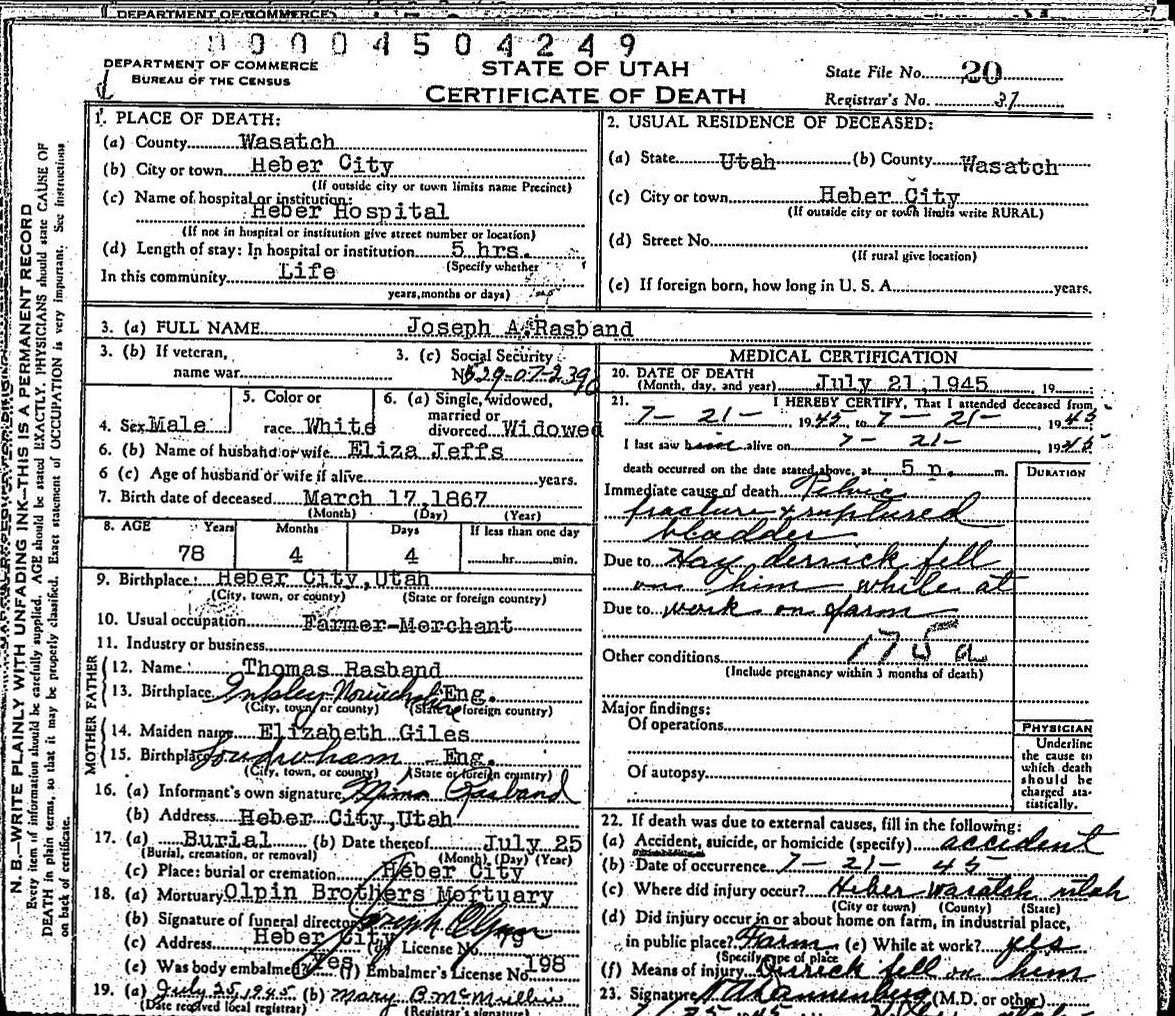 DEPARTMENT OF COMMERCE
0 0 0 0 4 5 0 4 2 4 9
DEPARTMENT OF COMMERCE
BUREAU OF THE CENSUS
STATE OF UTAH
CERTIFICATE OF DEATH
State File No. 20
Registrar's No. 37
N. B.—WRITE PLAINLY WITH UNFADING INK—THIS IS A PERMANENT RECORD
Every item of information should be carefully supplied. AGE should be stated EXACTLY. PHYSICIANS should state CAUSE OF
DEATH in plain terms, so that it may be properly classified. Exact statement of OCCUPATION is very important. See instructions
on back of certificate.
1. PLACE OF DEATH:
(a) County Wasatch
(b) City or town Heber City
(If outside city or town limits name Precinct)
(c) Name of hospital or institution:
Heber Hospital
(If not in hospital or institution give street number or location)
(d) Length of stay: In hospital or institution 5 hrs.
(Specify whether
In this community Life
years, months or days)
2. USUAL RESIDENCE OF DECEASED:
(a) State Utah (b) County Wasatch
(c) City or town Heber City
(If outside city or town limits write RURAL)
(d) Street No.
(If rural give location)
(e) If foreign born, how long in U. S. A. years.
3. (a) FULL NAME Joseph A. Rasband
3. (b) If veteran,
name war
3. (c) Social Security
No 529-07-2390
4. Sex Male
5. Color or
race White
6. (a) Single, widowed,
married or
divorced Widowed
6. (b) Name of husband or wife Eliza Jeffs
6 (c) Age of husband or wife if alive years.
7. Birth date of deceased March 17, 1867
(Month) (Day) (Year)
8. AGE Years Months Days If less than one day
78 4 4 hr. min.
9. Birthplace: Heber City, Utah
(City, town, or county) (State or foreign country)
10. Usual occupation Farmer-Merchant
11. Industry or business
FATHER
12. Name Thomas Rasband
13. Birthplace Eng.
(City, town or county) (State or foreign country)
MOTHER
14. Maiden name Elizabeth Giles
15. Birthplace Eng.
(City, town, or county) (State or foreign country)
16. (a) Informant's own signature Rasband
(b) Address Heber City, Utah
17. (a) Burial (b) Date thereof July 25
(Burial, cremation, or removal) (Month) (Day) (Year)
(c) Place: burial or cremation Heber City
18. (a) Mortuary Olpin Brothers Mortuary
(b) Signature of funeral director Joseph Olpin
(c) Address Heber City License No. 79
(e) Was body embalmed? Yes (f) Embalmer's License No. 198
19. (a) July 25, 1945 (b) Mary B. McMullin
(Date received local registrar) (Registrar's signature)
MEDICAL CERTIFICATION
20. DATE OF DEATH
(Month, day, and year) July 21, 1945 19
21. I HEREBY CERTIFY, That I attended deceased from
7-21- 1945, to 7-21- 1945
I last saw him alive on 7-21- 1945
death occurred on the date stated above, at 5 p. m.
DURATION
Immediate cause of death Pelvic
fracture & ruptured
bladder
Due to Hay derrick fell
on him while at
Due to work on farm
175a
Other conditions
(Include pregnancy within 3 months of death)
Major findings:
Of operations
Of autopsy
PHYSICIAN
Underline
the cause to
which death
should be
charged sta-
tistically.
22. If death was due to external causes, fill in the following:
(a) Accident, suicide, or homicide (specify) accident
(b) Date of occurrence 7-21-45
(c) Where did injury occur? Heber Wasatch Utah
(City or town) (County) (State)
(d) Did injury occur in or about home on farm, in industrial place,
in public place? Farm (e) While at work? yes
(Specify type of place
(f) Means of injury Derrick fell on him
23. Signature (M.D. or other)